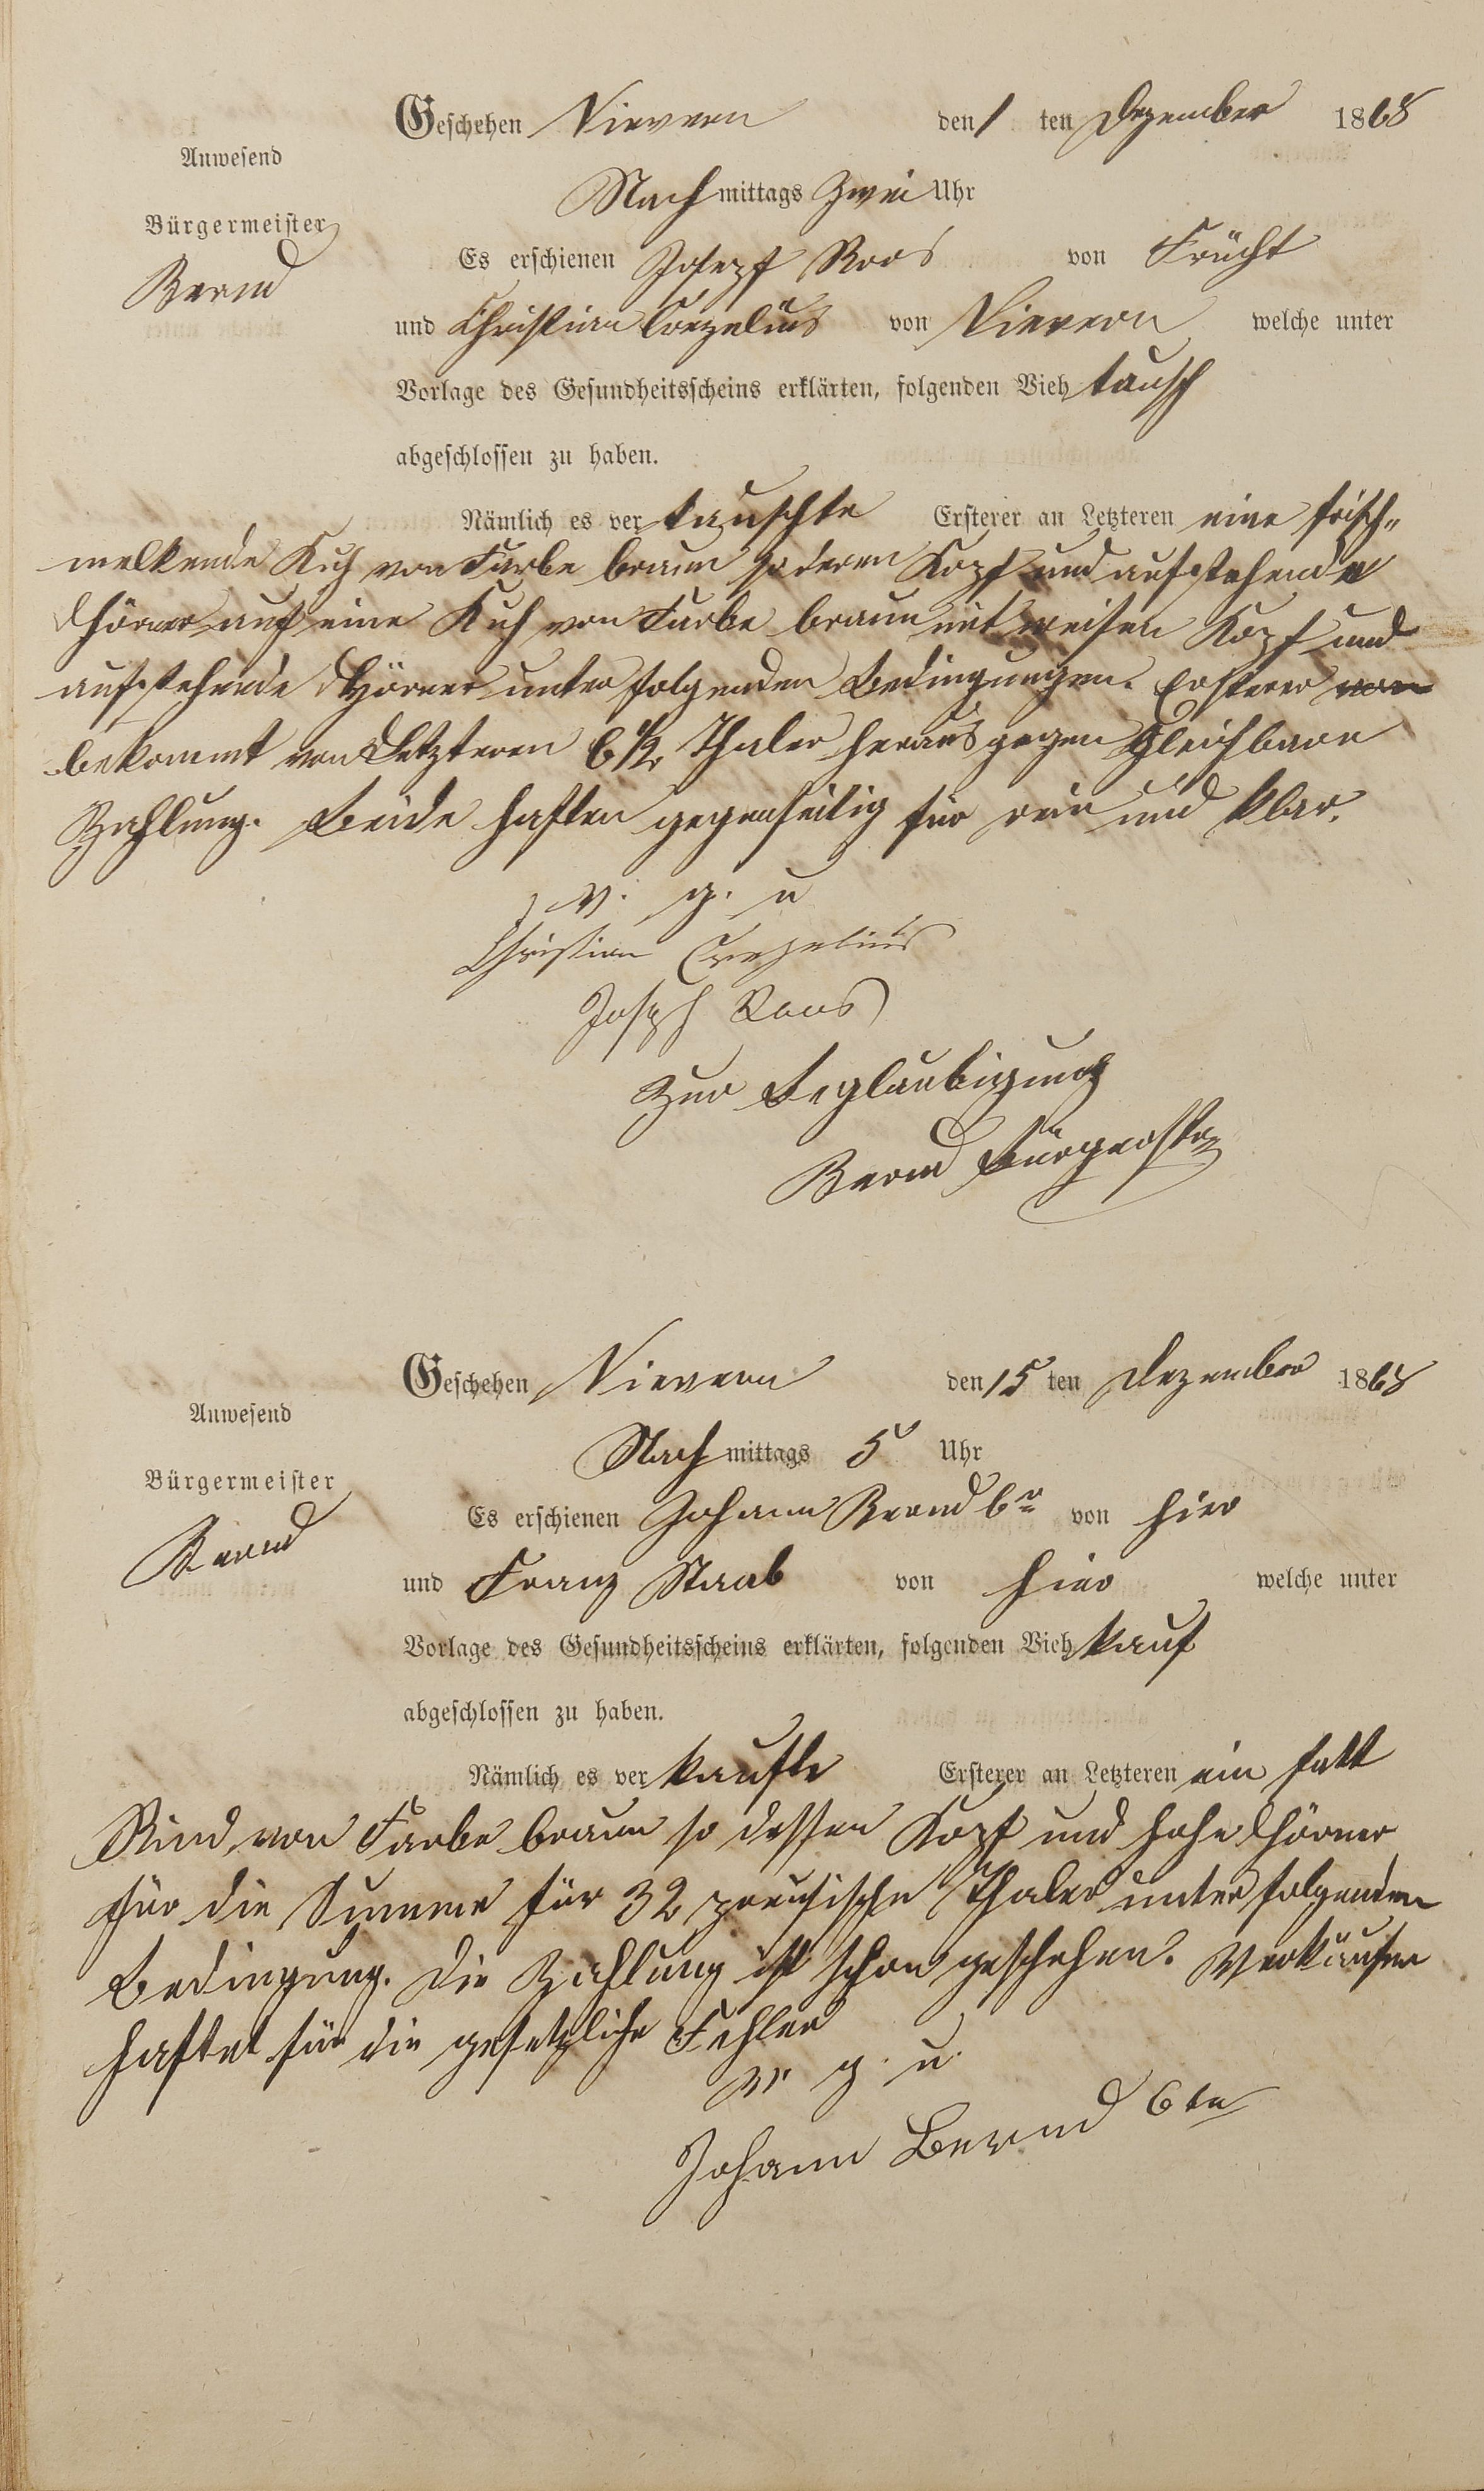 Geschehen Nievern den 1 ten Dezember 1868
Anwesend
Nachmittags Zwei Uhr
Bürgermeister
Bernd
Es erschienen Joseph Roos von Frücht
und Christian Crezelius von Nievern welche unter
Vorlage des Gesundheitsscheins erklärten, folgenden Viehtausch
abgeschlossen zu haben.
Nämlich es vertauschte Ersterer an Letzteren eine frisch„
melkende Kuh von Farbe braun so deren Kopf und aufstehende
Hörner auf eine Kuh von Farbe braun mit weisen Kopf und
aufstehende Hörner unter folgenden Bedingungen. Ersterer von
bekommt von Letzteren 6 1/2 Thaler heraus gegen Gleichbare
Zahlung. Beide haften gegenseitig für rein und klar.
v. g. u
Christian Crezelius
Joseph Roos
Zur Beglaubigung
Bernd Bürgermstr
Geschehen Nievern den 15 ten Dezember 1868
Anwesend
Nachmittags 5 Uhr
Bürgermeister
Bernd
Es erschienen Johann Bernd 6r von hier
und Franz Staab von hier welche unter
Vorlage des Gesundheitsscheins erklärten, folgenden Viehkauf
abgeschlossen zu haben.
Nämlich es verkaufte Ersterer an Letzteren ein fett
Rind von Farbe braun so dessen Kopf und hohe Hörner
für die Summe für 32 preusische Thaler unter folgenden
Bedingung. Die Zahlung ist schon geschehen. Verkäufer
haftet für die gesetzliche Fehler
v. g. u.
Johann Bernd 6te